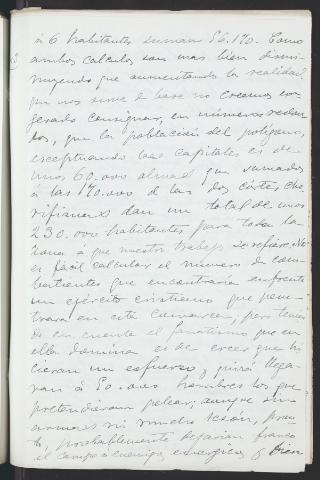 á 6 habitantes suman 56.170. Como
ambos calculos son mas bien dismi-
nuyendo que aumentando la realidad
que nos sirve de base no creemos exa-
jerado consignar, en números redon-
dos, que la población del polígono,
esceptuando las capitales es de
unos 60.000 almas que sumados
á las 170.000 de las dos córtes che-
rifianas dan un total de unos
230.000 habitantes para toda la
zona á que nuestro trabajo se refiere. No
es fácil calcular el número de com-
batientes que encontraría enfrente
un ejército cristiano que pene-
trara en esta comarca, pero tenien-
do en cuenta el fanatismo que en
ella domina es de creer que hi-
cieran un esfuerzo y quizá llega-
ran á 50.000 hombres los que
pretendieran pelear; aunque sin
armas ni mucho tesón, pron-
to, probablemente dejarían franco
el campo á enemigo enérgico y bien